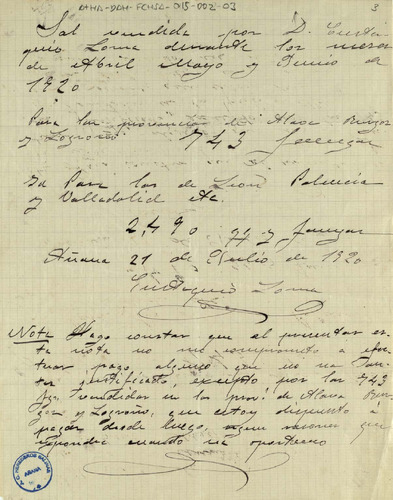 ATHA-DAH-FCHSA-015-002-03
3
Sal vendida por D. Eusta
quio Loma durante los meses
de Abril Mayo y Junio de
1920
Para las provincias de Alava Burgos
y Logroño 743 fanegas
Id Para las de León Palencia
y Valladolid
2,490 y fanegas
Añana 21 de Julio de 1920
Eustaquio Loma
Nota Hago constar que al presentar es-
ta nota no me comprometo a efec
tuar pago alguno que no sea
justificado, excepto por las 743
fgs vendidas en las prov. de Alava Bur
gos y Logroño, que estoy dispuesto á
pagar desde luego, que
cuando
AÑANA